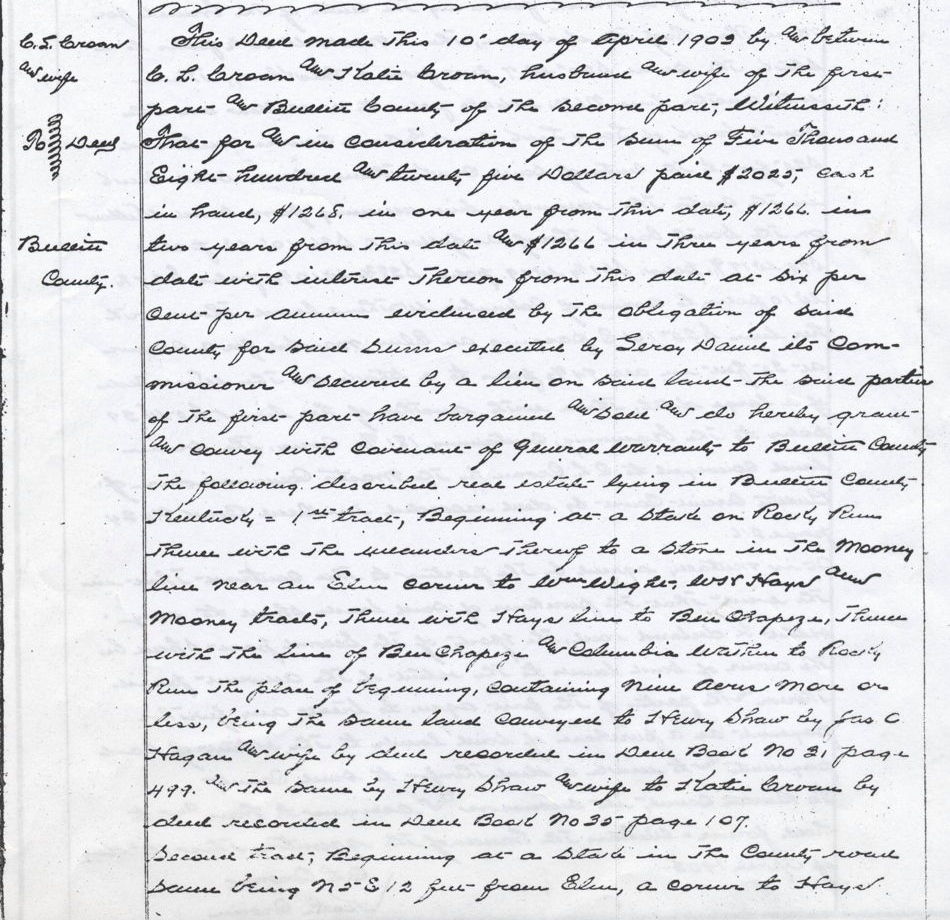 C. L. Croan
and wife
To Deed
Bullitt
County.
This Deed made this 10' day of April 1903 by and between
C. L. Croan and Katie Croan, husband and wife of the first
part and Bullitt County of the second part, Witnesseth:
That for and in consideration of the sum of Five Thousand
Eight hundred and twenty five Dollars paid $2025, cash
in hand, $1268. in one year from this date, $1266. in
two years from this date and $1266 in three years from
date with interest thereon from this date at six per
cent per annum evidenced by the obligation of said
County for said sums executed by Leroy Daniel its Com-
missioner and secured by a lien on said land - the said parties
of the first part have bargained and sold and do hereby grant
and convey with covenant of General Warranty to Bullitt County
the following described real estate lying in Bullitt County
Kentucky = 1st tract, Beginning at a stake on Rocky Run
thence with the meanders thereof to a stone in the Mooney
line near an Elm corner to Wm Wight, W S Hays and
Mooney tracts, thence with Hays line to Ben Chapeze, thence
with the line of Ben Chapeze and Columbia Wathen to Rocky
Run the place of beginning, containing nine acres more or
less, being the same land conveyed to Henry Shaw by Jas C
Hagan and wife by deed recorded in Deed Book No 31 page
499. and the same by Henry Shaw and wife to Katie Croan by
deed recorded in Deed Book No 35 page 107.
Second tract; Beginning at a stake in the County road
same being N 5 E 12 feet from Elm, a corner to Hays